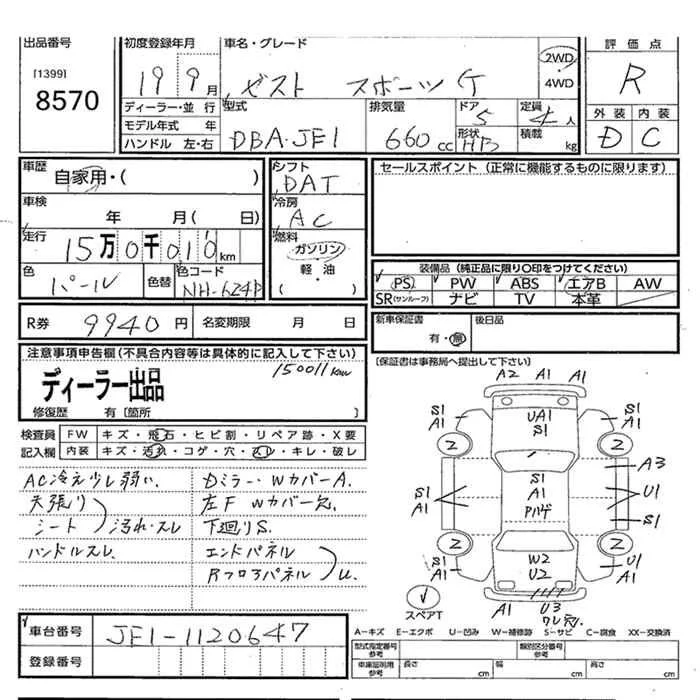 出品番号
[1399]
8570
初度登録年月
19 9月
車名・グレード
ゼスト スポーツ G
2WD
・
4WD
評価点
R
外装 内装
D C
ディーラー・並行
モデル年式 年
ハンドル 左・右
型式
DBA-JE1
排気量
660 cc
ドア
5
形状
HB
定員
4 人
積載
kg
車歴
自家用・( )
車検
年 月( 日)
走行
15万0千010km
色
パール
色替
色コード
NH-624P
シフト
DAT
冷房
AC
燃料
ガソリン
軽・油
( )
セールスポイント (正常に機能するものに限ります)
装備品 (純正品に限り○印をつけてください)
PS PW ABS エアB AW
SR(サンルーフ) ナビ TV 本革
R券 9940円 名変期限 月 日
新車保証書
有・無
後日品
[保証書は事務局へ提出して下さい]
注意事項申告欄(不具合内容等は具体的に記入して下さい)
150011km
ディーラー出品
修復歴 有 [箇所 ]
検査員 FW キズ・飛石・ヒビ割・リペア跡・X要
記入欄 内装 キズ・汚れ・コゲ・穴・スレ・キレ・破レ
AC冷え少し弱い.
天張り
シート 汚れ・スレ
ハンドルスレ
Dミラー・WカバーA.
左F Wカバー欠.
下廻りS.
エンドパネル
Rフロアパネル U.
A2 A1 A1
S1
A1
UA1
S1
S1
A1
2 2
S1
A1
S1
A1
Pハゲ
A3
U1
S1
2 2
S1
A1
W2
U2
U1
A1
スペアT
A1 U3
ワレ有.
A1
車台番号 JE1-1120647
登録番号
A−キズ E−エクボ U−凹み W−補修跡 S−サビ C−腐食 XX−交換済
型式指定番号
参考
類別区分番号
参考
車庫証明用
参考
長さ cm 幅 cm 高さ cm